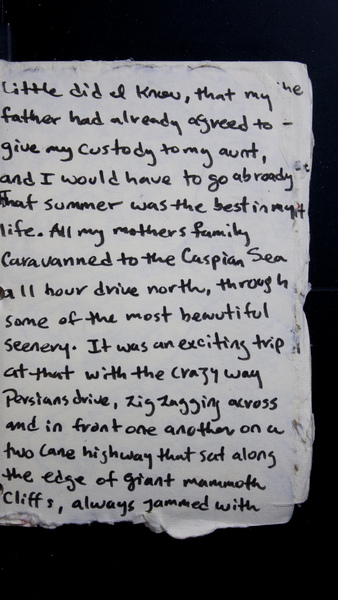 Little did I know, that my
father had already agreed to -
give my custody to my aunt,
and I would have to go abroad.
That summer was the best in my
life. All my mothers family
Caravanned to the Caspian Sea
a 11 hour drive north, through
some of the most beautiful
seenery. It was an exciting trip
at that with the crazy way
Persians drive, zig zagging across
and in front one another on a
two lane highway that sat along
the edge of giant mammoth
Cliffs, always jammed with